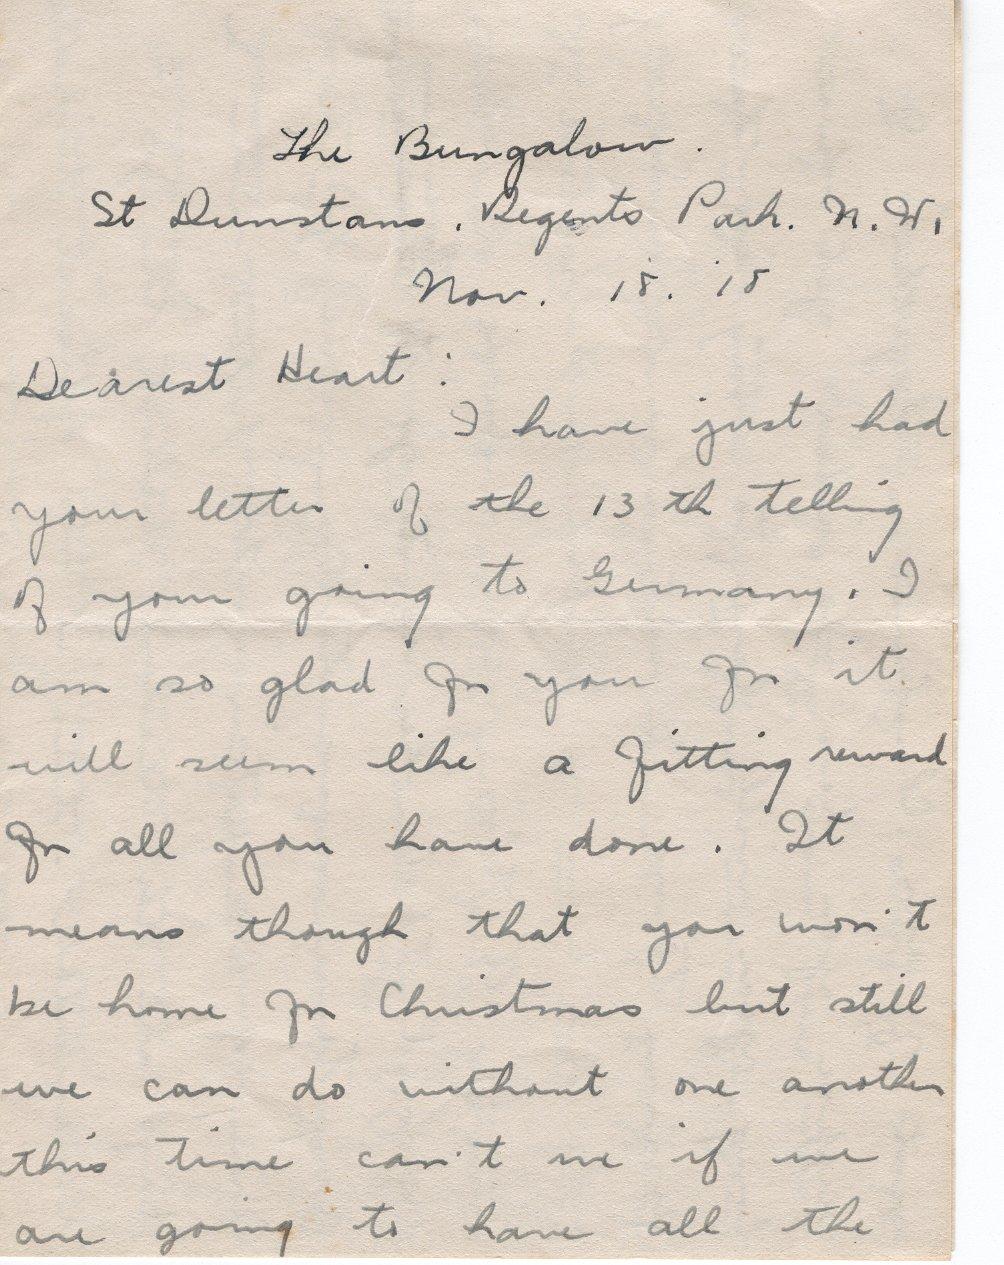 The Bungalow.
St Dunstans, Regents Park. N.W.
Nov. 18. '18
Dearest Heart:
I have just had
your letter of the 13th telling
of your going to Germany. I
am so glad for you for it
will seem like a fitting reward
for all you have done. It
means though that you won't
be home for Christmas but still
we can do without one another
this time can't we if we
are going to have all the